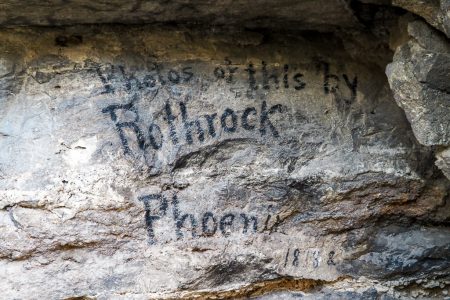 Photos of this by
Bothrock
Phoenix
1882